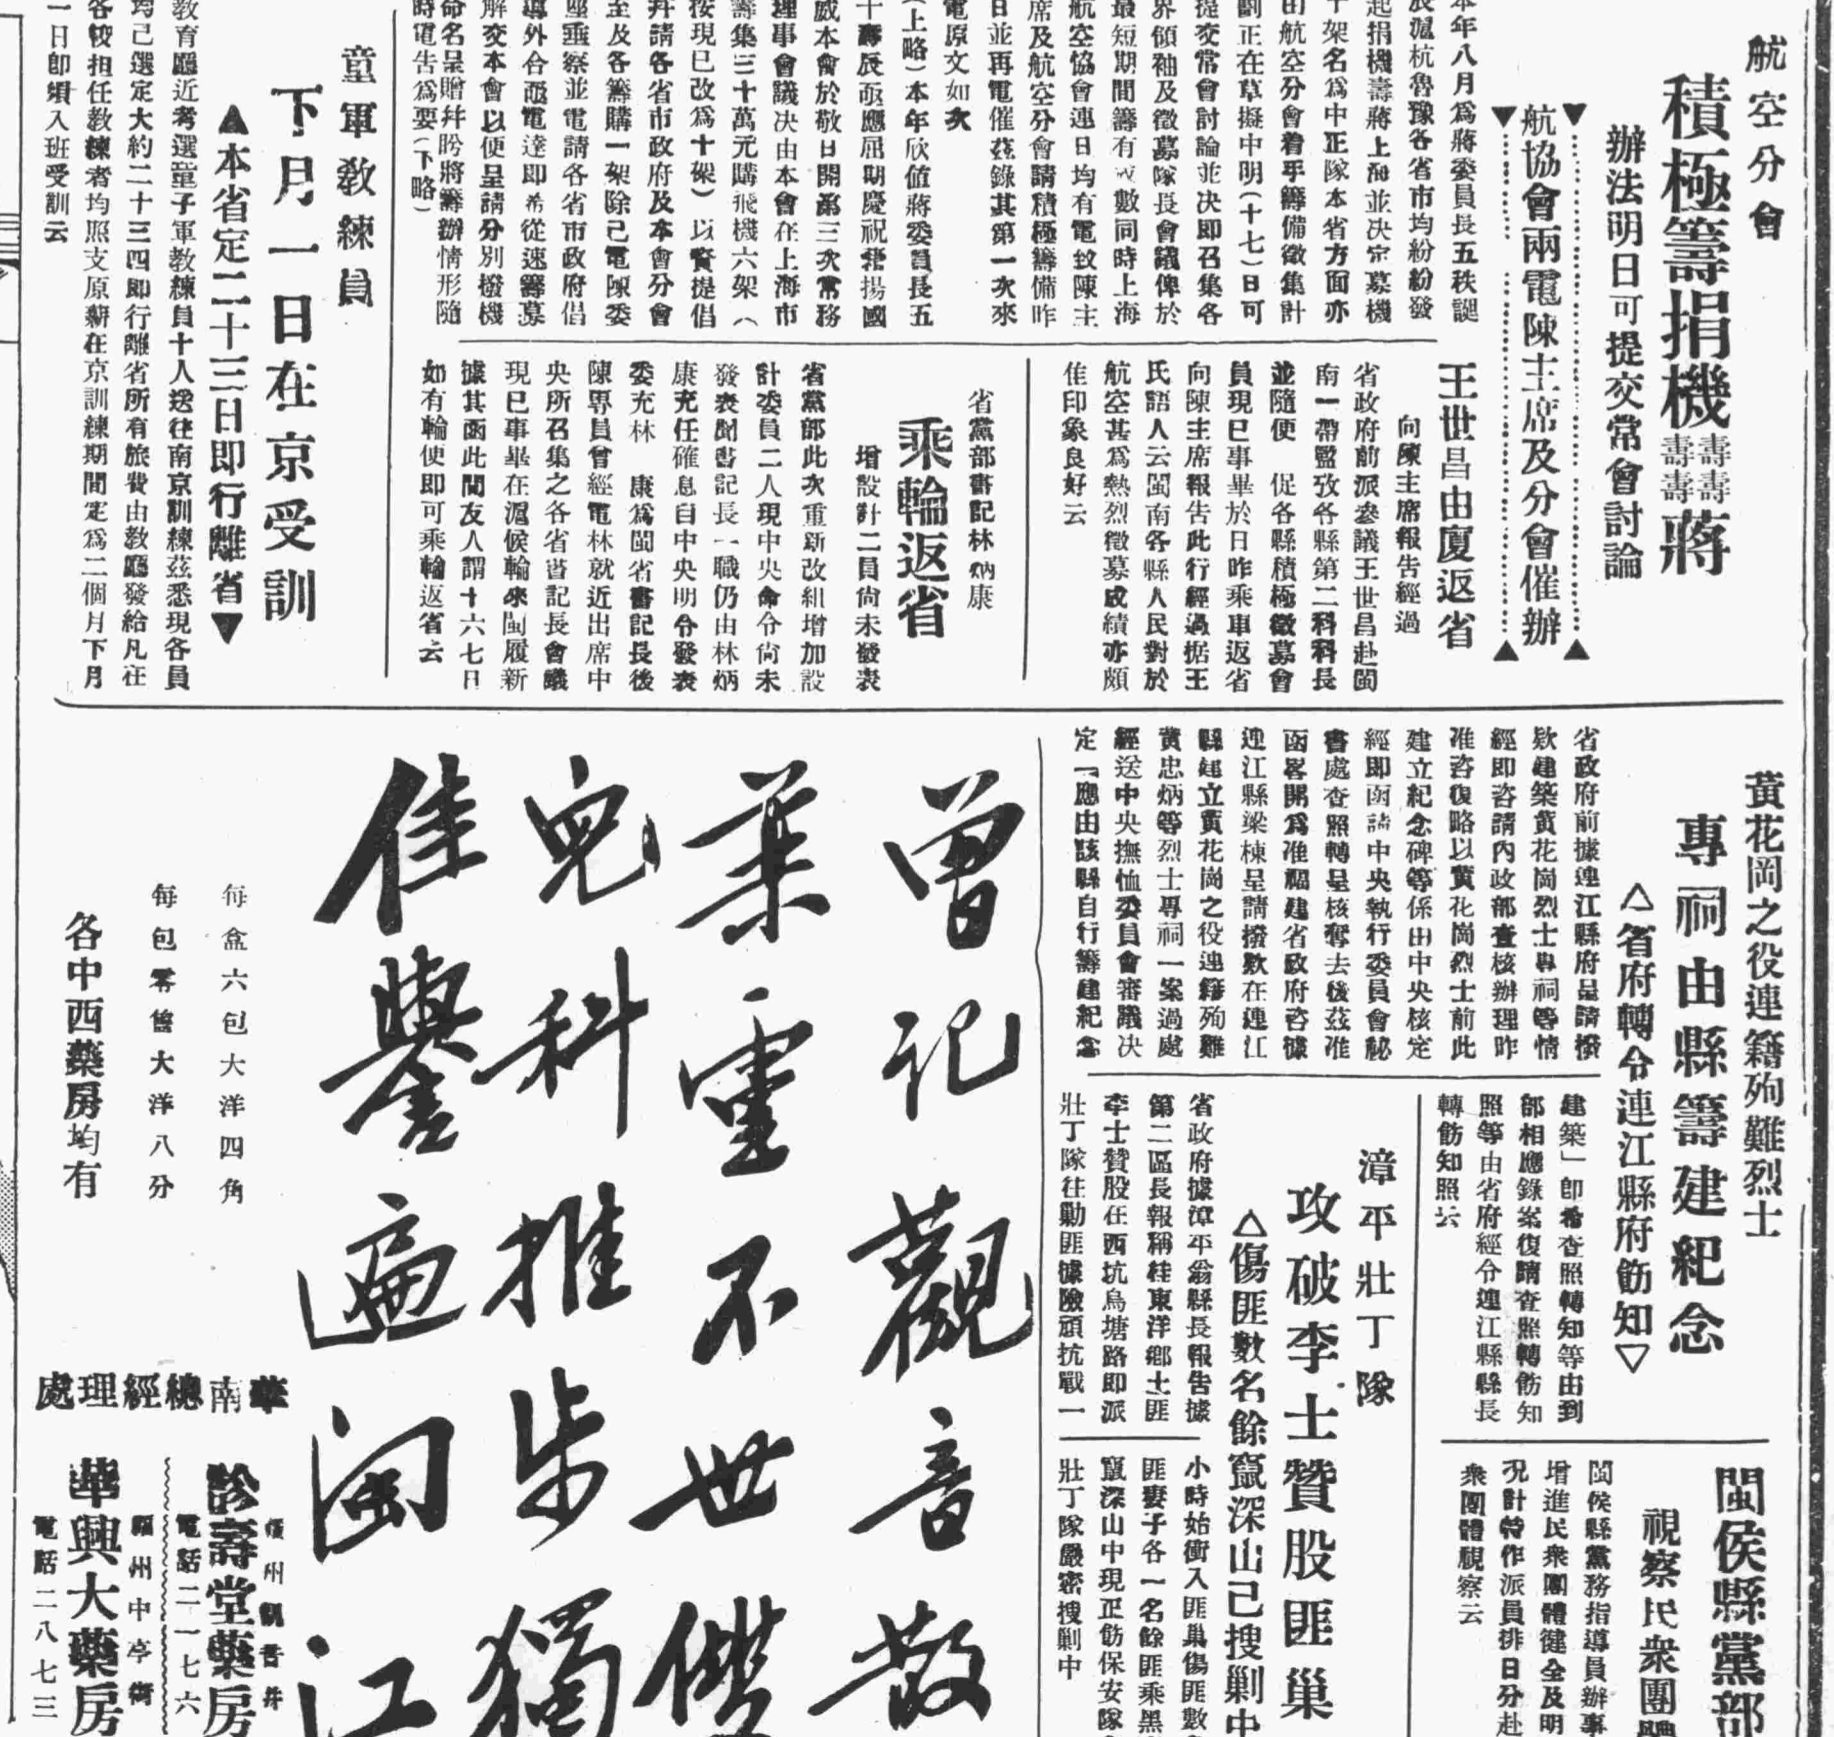 航空分會
積極籌捐機壽壽壽壽蔣
辦法明日可提交常會討論
▼航協會兩電陳主席及分會催辦▲
本年八月爲蔣委員長五秩誕
辰滬杭魯豫各省市均紛紛發
起捐機壽蔣上海並決定募機
十架名爲中正隊本省方面亦
由航空分會着手籌備徵集計
劃正在草擬中明(十七)日可
提交常會討論並決即召集各
界領袖及徵募隊長會議俾於
最短期間籌有成數同時上海
航空協會連日均有電致陳主
席及航空分會請積極籌備昨
日並再電催茲錄其第一次來
電原文如次
(上略)本年欣值蔣委員長五
十壽辰亟應屆期慶祝藉揚國
威本會於敬日開第三次常務
理事會議决由本會在上海市
籌集三十萬元購飛機六架(
按現已改爲十架)以資提倡
并請各省市政府及本會分會
至及各籌購一架除已電陳委
座垂察並電請各省市政府倡
導外合亟電達即希從速籌募
解交本會以便呈請分別撥機
命名呈贈幷盼將籌辦情形隨
時電告爲要(下略)
王世昌由廈返省
向陳主席報告經過
省政府前派參議王世昌赴閩
南一帶監攷各縣第二科科長
並隨便 促各縣積極徵募會
員現已事畢於日昨乘車返省
向陳主席報告此行經過据王
氏語人云閩南各縣人民對於
航空甚爲熱烈徵募成績亦頗
佳印象良好云
省黨部書記林炳康
乘輪返省
增設計二員尙未發表
省黨部此次重新改組增加設
計委員二人現中央命令尙未
發表聞書記長一職仍由林炳
康充任確息自中央明令發表
委充林 康爲閩省書記長後
陳專員曾經電林就近出席中
央所召集之各省書記長會議
現已事畢在滬候輪來閩履新
據其函此間友人謂十六七日
如有輪便即可乘輪返省云
童軍敎練員
下月一日在京受訓
▲本省定二十三日即行離省▼
敎育廳近考選童子軍敎練員十人送往南京訓練茲悉現各員
均已選定大約二十三四即行離省所有旅費由敎廳發給凡在
各校担任敎練者均照支原薪在京訓練期間定爲二個月下月
一日卽須入班受訓云
黃花岡之役連籍殉難烈士
專祠由縣籌建紀念
△省府轉令連江縣府飭知▽
省政府前據連江縣府呈請撥
欵建築黃花崗烈士專祠等情
經即咨請內政部查核辦理昨
准咨復略以黃花崗烈士前此
建立紀念碑等係由中央核定
經即函請中央執行委員會秘
書處查照轉呈核奪去後茲准
函畧開爲准福建省政府咨據
連江縣梁棟呈請撥欵在連江
縣建立黃花崗之役連籍殉難
黃忠炳等烈士專祠一案過處
經送中央撫恤委員會審議决
定「應由該縣自行籌建紀念
建築」卽希查照轉知等由到
部相應錄案復請查照轉飭知
照等由省府經令連江縣縣長
轉飭知照云
漳平壯丁隊
攻破李士贊股匪巢
△傷匪數名餘竄深山己搜剿中
省政府據漳平翁縣長報告據
第二區長報稱桂東洋鄉土匪
李士贊股在西坑烏塘路即派
壯丁隊往勦匪據險頑抗戰一
小時始衝入匪巢傷匪數
匪妻子各一名餘匪乘黑
竄深山中現正飭保安隊
壯丁隊嚴密搜剿中
閩侯縣黨部
視察民衆團體
閩侯縣黨務指導員辦事
增進民衆團體健全及明
況計特作派員排日分赴
衆團體視察云
曾記觀音散
葉靈不世傑
兒科推步獨
佳譽遍閩江
每盒六包大洋四角
每包零售大洋八分
各中西藥房均有
華南總經理處
壽堂藥房
電話二一七六
福州中亭街
華興大藥房
電話二八七三